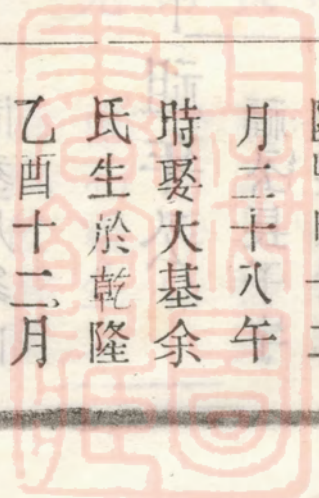 月二十八午
時娶大基余
氏生於乾隆
乙酉十二月